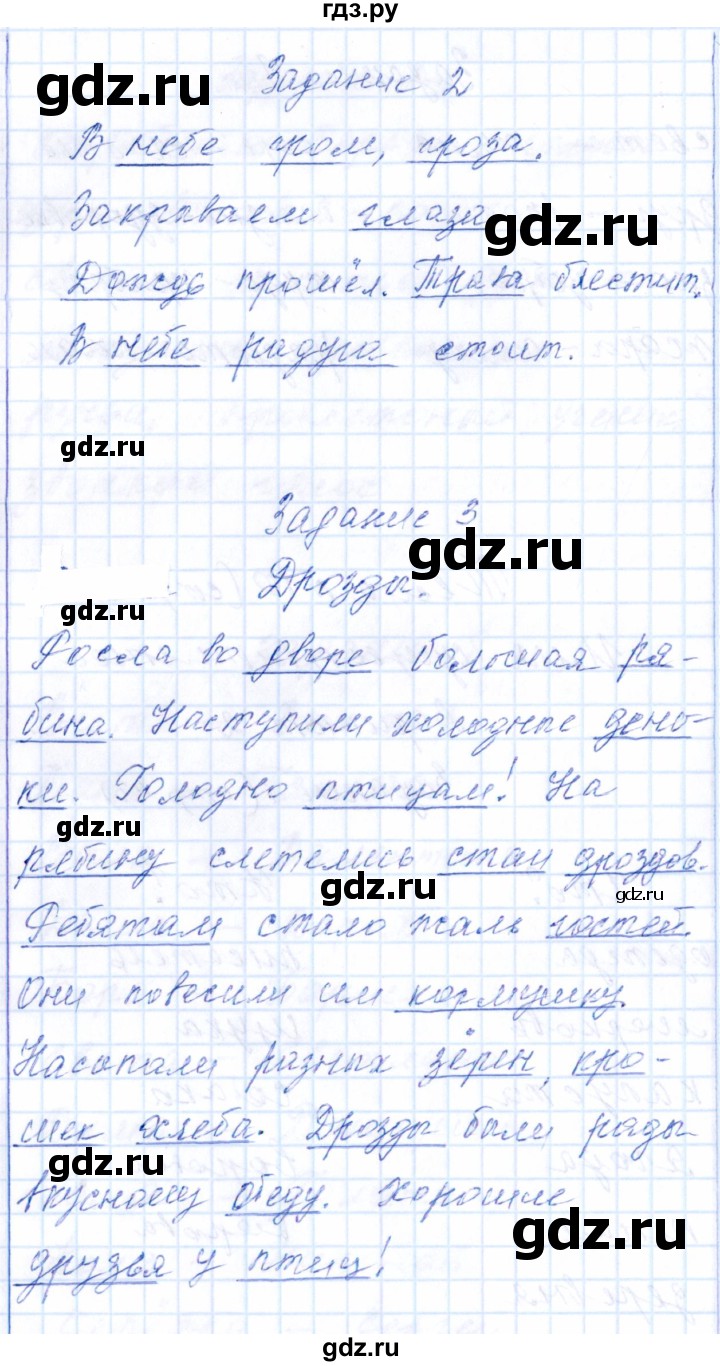 гдз.ру
gdz.ru
Задание 2
В небе гром, гроза.
Закрываем глаза
gdz.ru
Дождь прошёл. Трава блестит.
В небе радуга стоит.
gdz.ru
Задание 3
gdz.ru
Дрозды.
gdz.ru
Росла во дворе большая ря-
бина. Наступили холодные день-
ки. Голодно птицам! На
gdz.ru
рябину слетелись стаи дроздов.
gdz.ru
gdz.ru
Ребятам стало жаль гостей.
Они повесили им кормушку.
Насыпали разных зёрен, кро-
шек хлеба. Дрозды были рады
gdz.ru
вкусному обеду. Хорошие
gdz.ru
друзья у птиц!
gdz.ru